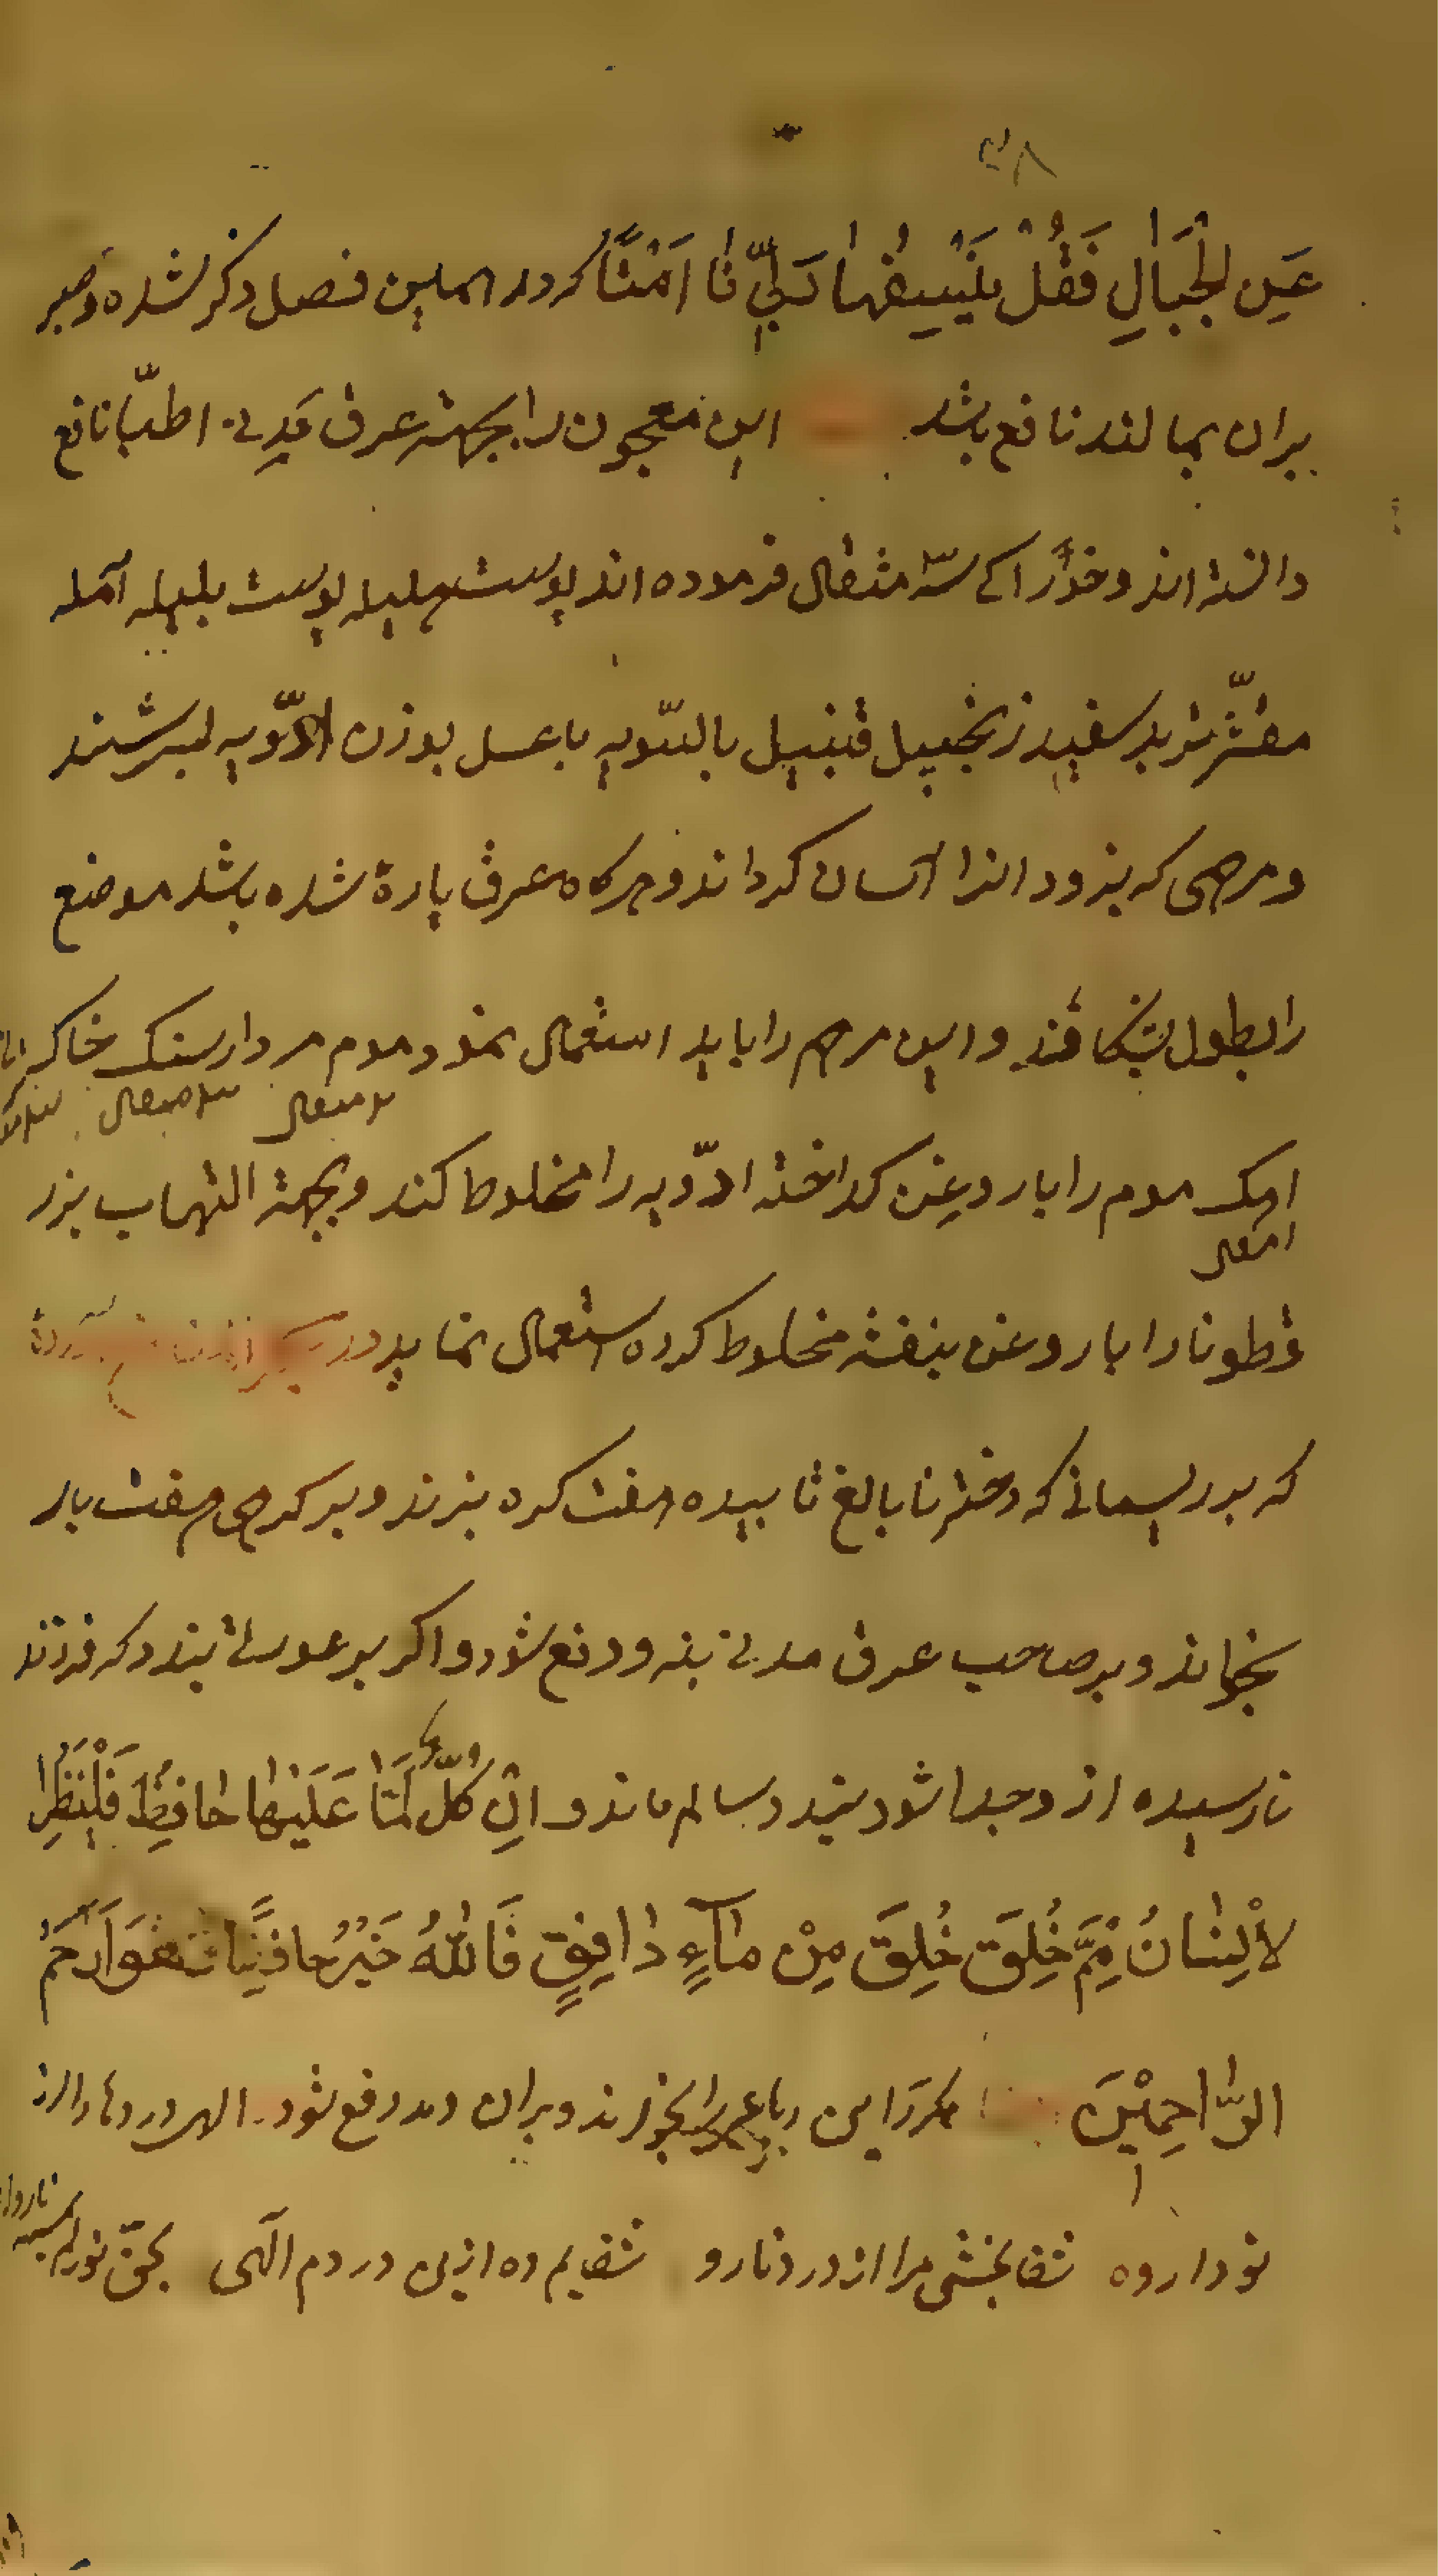 ۳۸
عَنِ الْجِبَالِ فَقُلْ يَنْسِفُهَا رَبِّي نَا اَمْتًا که در اولین فصل ذکر شده و صبر
بران بمالند نافع باشد این معجون را بجهته عرق مدنی اطبّا نافع
دانسته اند و خوراکی سه مثقال فرموده اند پوست هلیله پوست بلیله آمله
مقشّر تربد سفید زنجبیل قنبیل بالسّویه باعسل بوزن ادّویه بسرشند
و مرهمی که بزود انرا آسان کرداند و هرکاه عرق پارۀ شده باشد موضع
را بطول بشکافند و این مرهم را باید استعمال نمود موم مردارسنک خاکه
۲ مثقال ۳ مثقال
اهک موم را با روغن کداخته ادّویه را مخلوط کند و بجهة التهاب بزر
۱ مثقال
قطونا را با روغن بنفشه مخلوط کرده استعمال نماید
که بر ریسمانی که دختر نابالغ تابیده هفت کره بزند و بر کرهی هفت بار
بخواند و بر صاحب عرق مدنی بندد دفع شود و اکر بر عورتی بندد که فرزند
نارسیده از و جدا شود بندد سالم ماند و اِنْ كُلُّ لَمَّا عَلَيْهَا حَافِظٌ فَلْيَنْظُرِ
الْاِنْسَانُ مِمَّ خُلِقَ خُلِقَ مِنْ مَآءٍ دَافِقٍ فَاللّٰهُ خَيْرٌ حَافِظًا وَهُوَ اَرْحَمُ
الرَّاحِمِيْنَ مکرر این رباعی را بخوانند و بران دمد رفع شود الهی درد ما را از
تو دارو ده شفا بخشی مرا از درد نارو شفایم ده ازین دردم الٓهی بحقّ نور